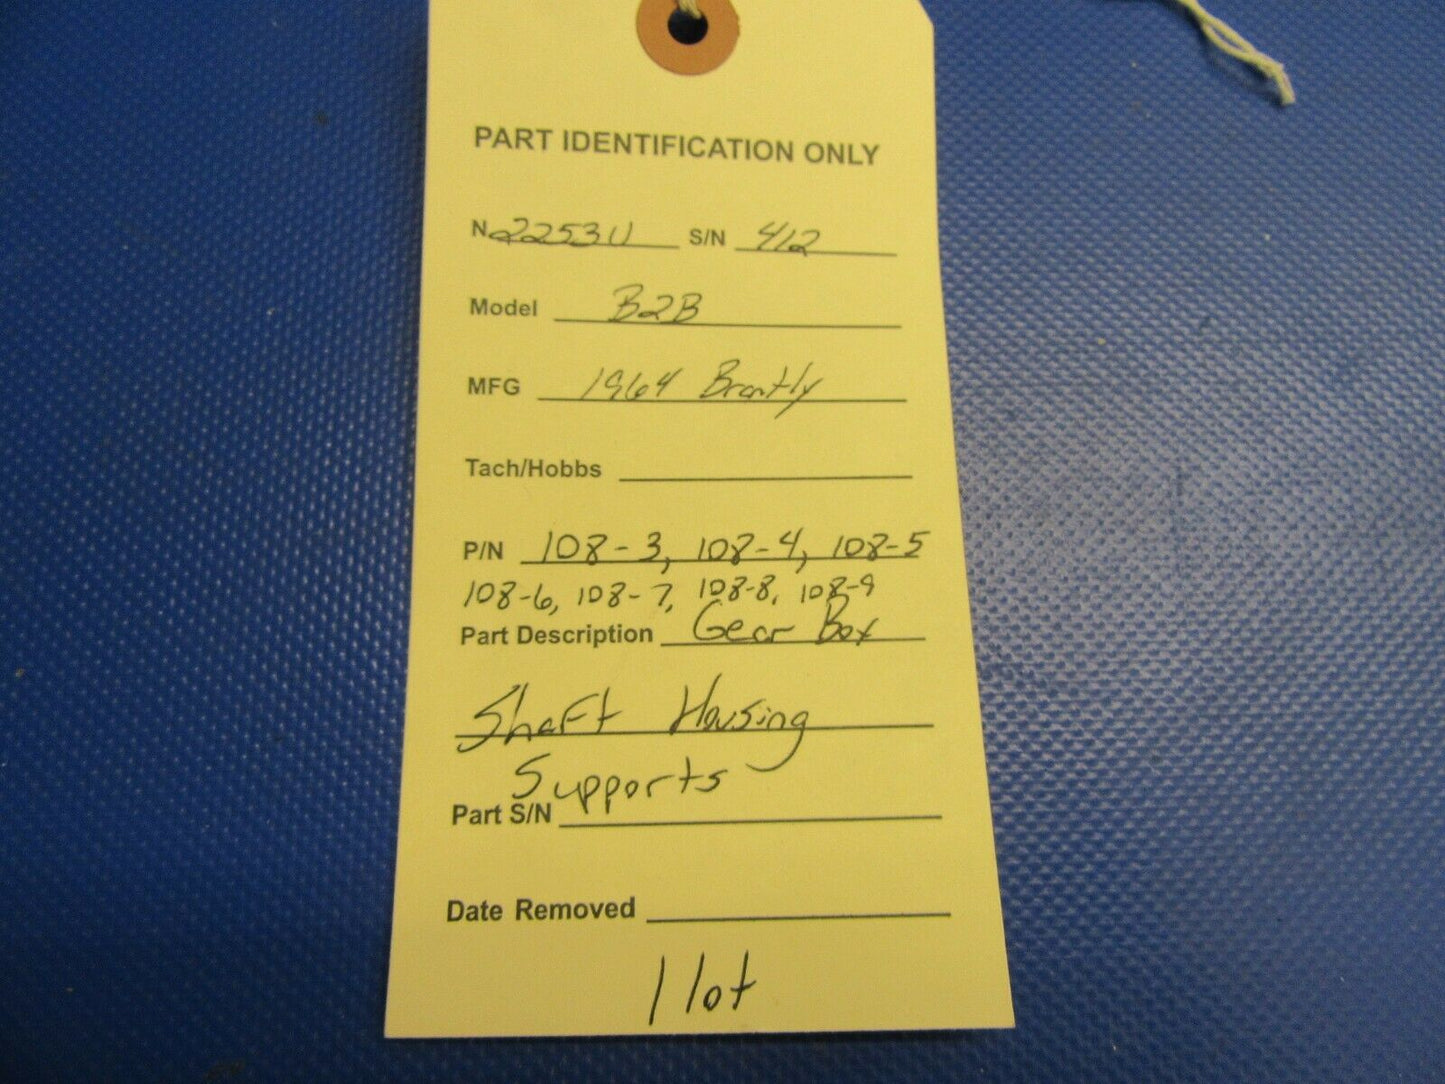 PART IDENTIFICATION ONLY
N 2253U S/N 412
Model B2B
MFG 1964 Brantly
Tach/Hobbs
P/N 108-3, 108-4, 108-5
108-6, 108-7, 108-8, 108-9
Part Description Gear Box
Shaft Housing
Supports
Part S/N
Date Removed
1 lot